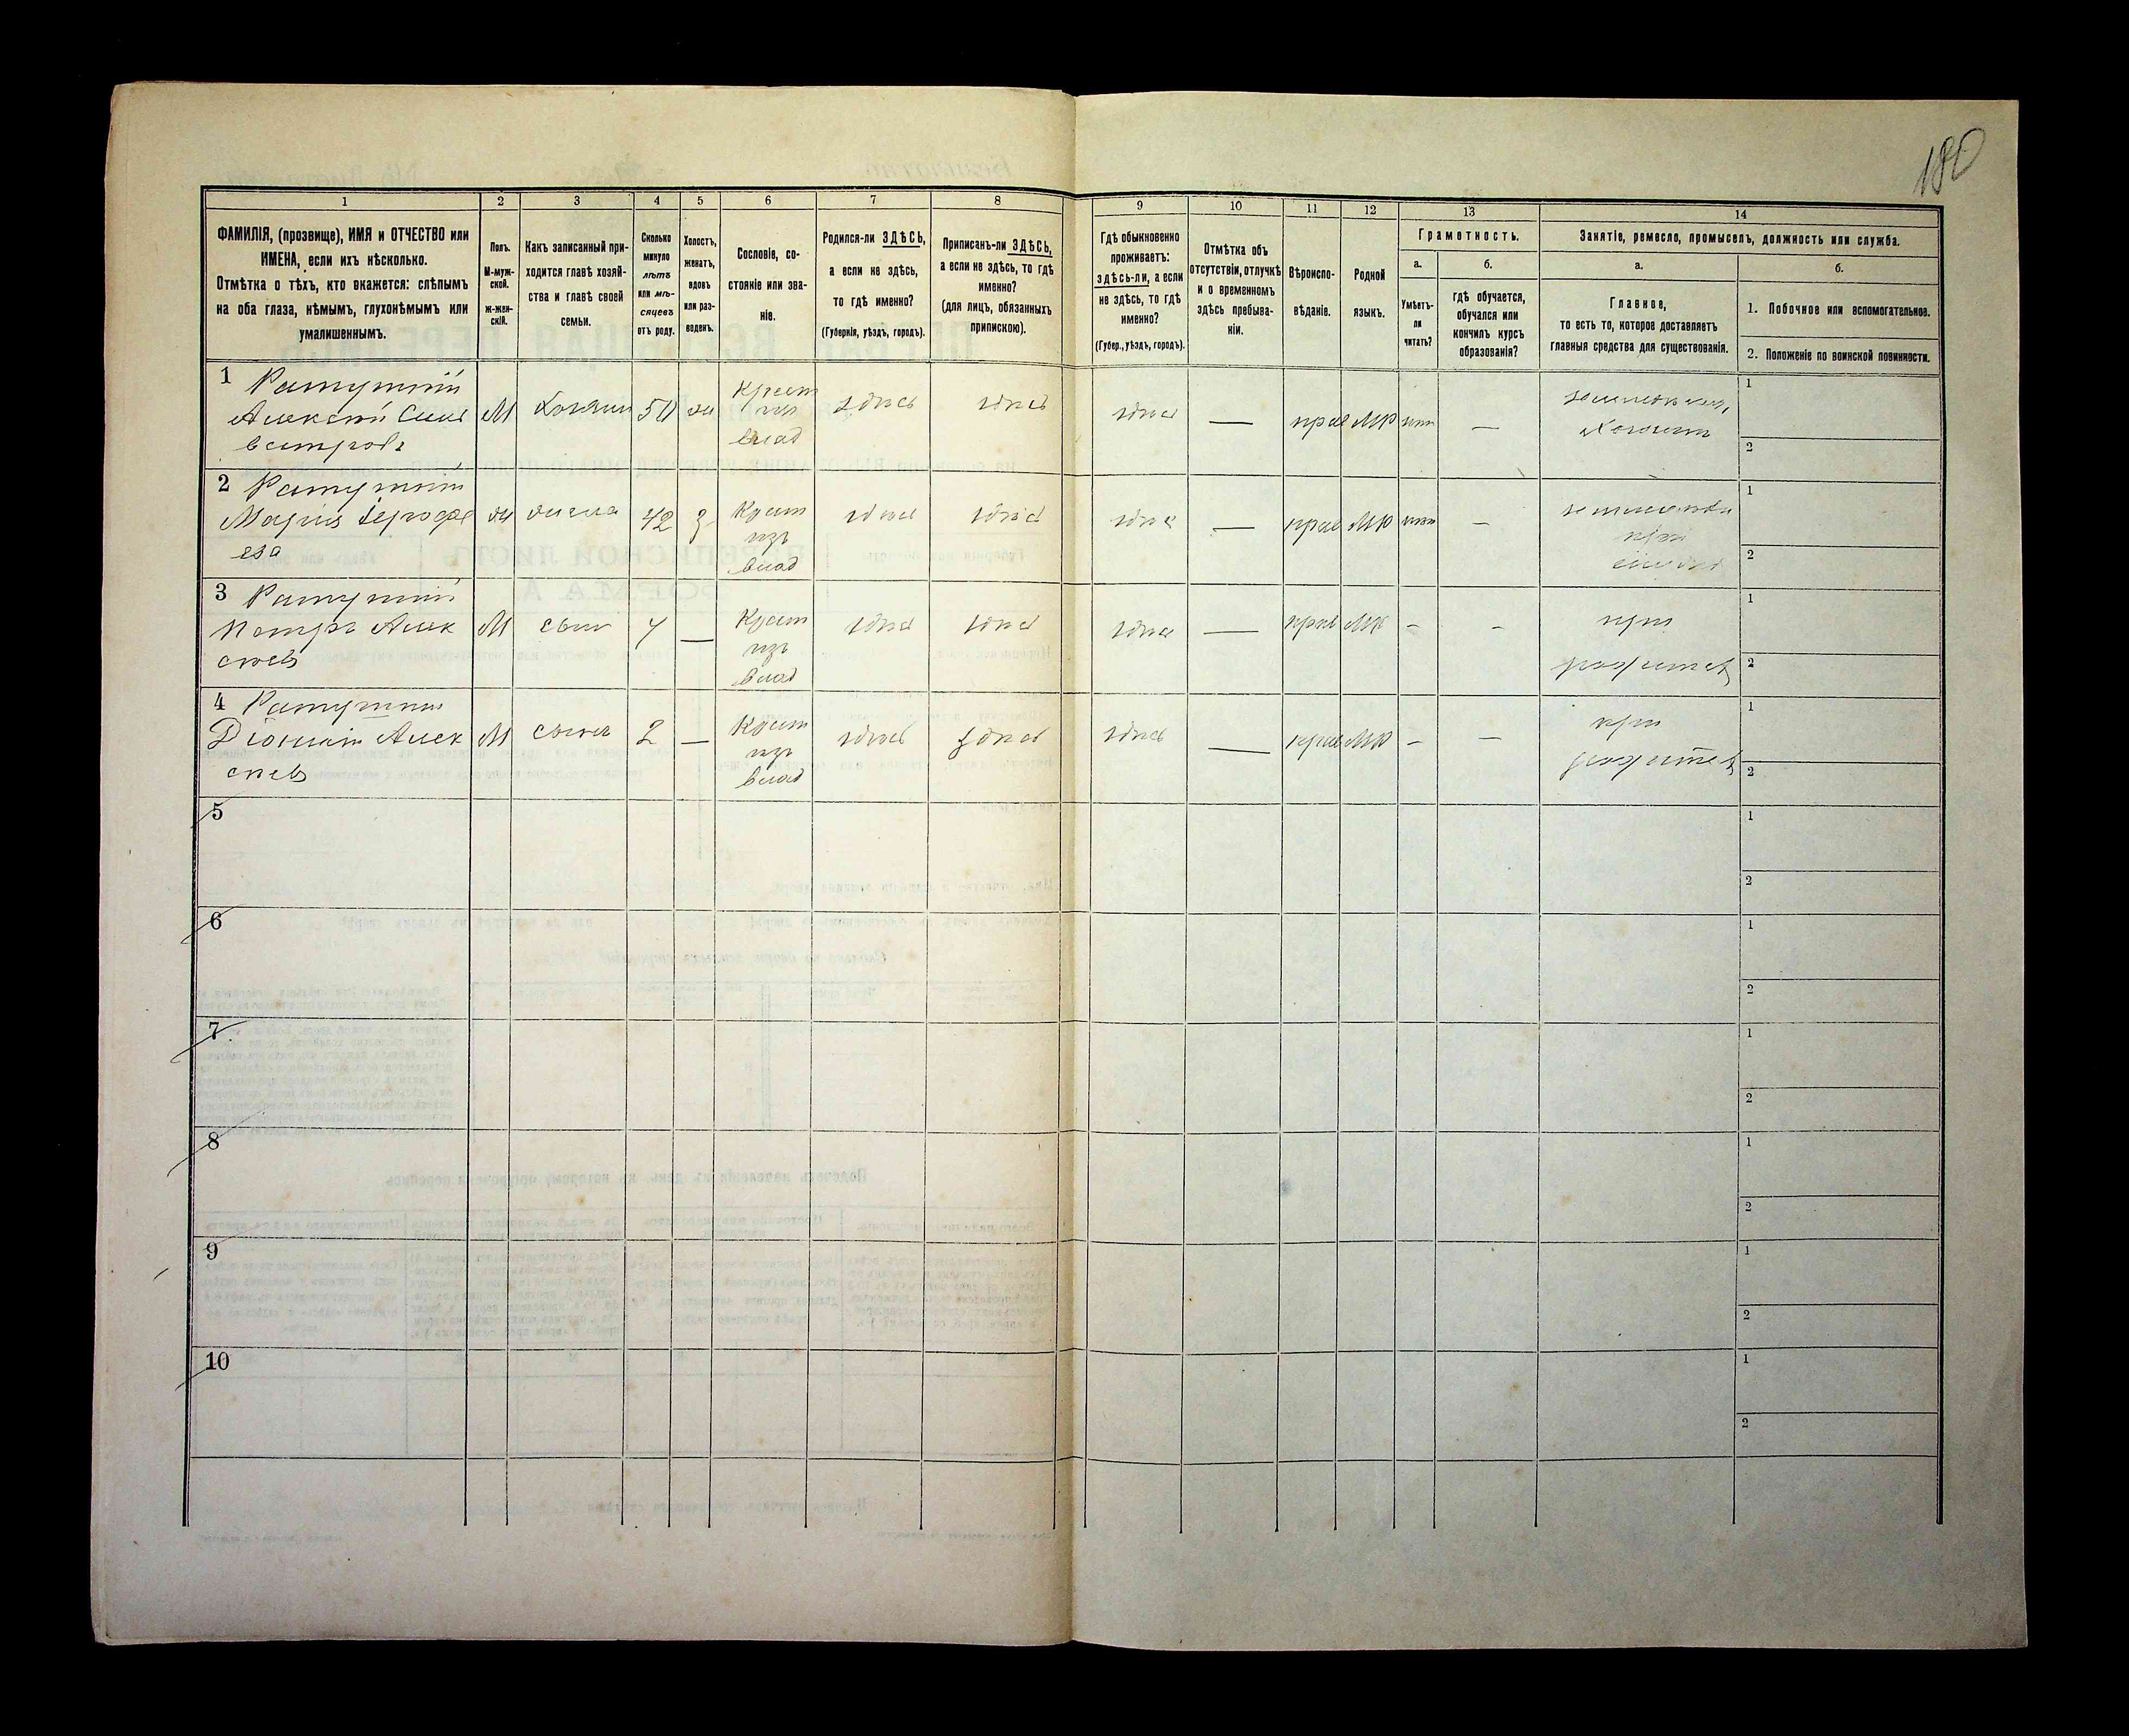 180
1 2 3 4 5 6 7 8 9 10 11 12 13 14
ФАМИЛІЯ, (прозвище), ИМЯ и ОТЧЕСТВО или
ИМЕНА, если ихъ нѣсколько.
Отмѣтка о тѣхъ, кто окажется: слѣпымъ
на оба глаза, нѣмымъ, глухонѣмымъ или
умалишеннымъ.
Полъ.
М-муж-
ской.
ж-жен-
скій.
Какъ записанный при-
ходится главѣ хозяй-
ства и главѣ своей
семьи.
Сколько
минуло
лѣтъ
или мѣ-
сяцевъ
отъ роду.
Холостъ,
женатъ,
вдовъ
или раз-
веденъ.
Сословіе, со-
стояніе или зва-
ніе.
Родился-ли ЗДѢСЬ,
а если не здѣсь,
то гдѣ именно?
(Губернія, уѣздъ, городъ).
Приписанъ-ли ЗДѢСЬ,
а если не здѣсь, то гдѣ
именно?
(для лицъ, обязанныхъ
припискою).
Гдѣ обыкновенно
проживаетъ:
здѣсь-ли, а если
не здѣсь, то гдѣ
именно?
(Губер., уѣздъ, городъ).
Отмѣтка объ
отсутствіи, отлучкѣ
и о временномъ
здѣсь пребыва-
ніи.
Вѣроиспо-
вѣданіе.
Родной
языкъ.
Грамотность.
а.
Умѣетъ-
ли
читать?
б.
гдѣ обучается,
обучался или
кончилъ курсъ
образованія?
Занятіе, ремесло, промыселъ, должность или служба.
а.
Главное,
то есть то, которое доставляетъ
главныя средства для существованія.
б.
1. Побочное или вспомогательное.
2. Положеніе по воинской повинности.
1 Ратушній
Алексѣй Силь
вестровъ
М
Хозяин
50
жн
Крест
изъ
влад
здѣсь
здѣсь
здѣсь
—
прав
МР
нѣт
—
Хозяинъ
1
2
2 Ратушній
Марія Іерофе
ева
ж
жена
42
з
Крест
изъ
влад
здѣсь
здѣсь
здѣсь
—
прав
МР
нѣт
—
при
1
2
3 Ратушній
Петръ Алек
сѣевъ
М
сынъ
4
—
Крест
изъ
влад
здѣсь
здѣсь
здѣсь
—
прав
МР
–
–
при
родител
1
2
4 Ратушній
Діонисій Алек
сѣевъ
М
сынъ
2
—
Крест
изъ
влад
здѣсь
здѣсь
здѣсь
—
прав
МР
–
–
при
родител
1
2
5
1
2
6
1
2
7
1
2
8
1
2
9
1
2
10
1
2